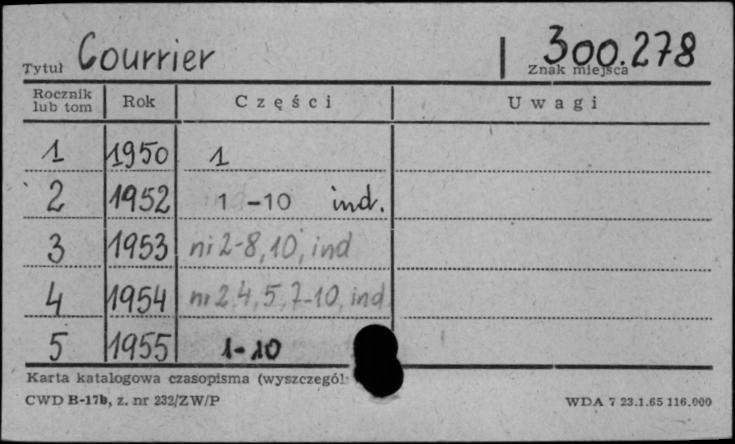 Tytuł Courrier
300.278
Znak miejsca
Rocznik lub tom Rok Części Uwagi
1 1950 1
2 1952 1-10 ind.
3 1953 nr 2-8, 10, ind
4 1954 nr 2, 4, 5, 7-10, ind
5 1955 1-10
Karta katalogowa czasopisma (wyszczegól
CWD B-17b, z. nr 232/ZW/P WDA 7 23.1.65 116.000